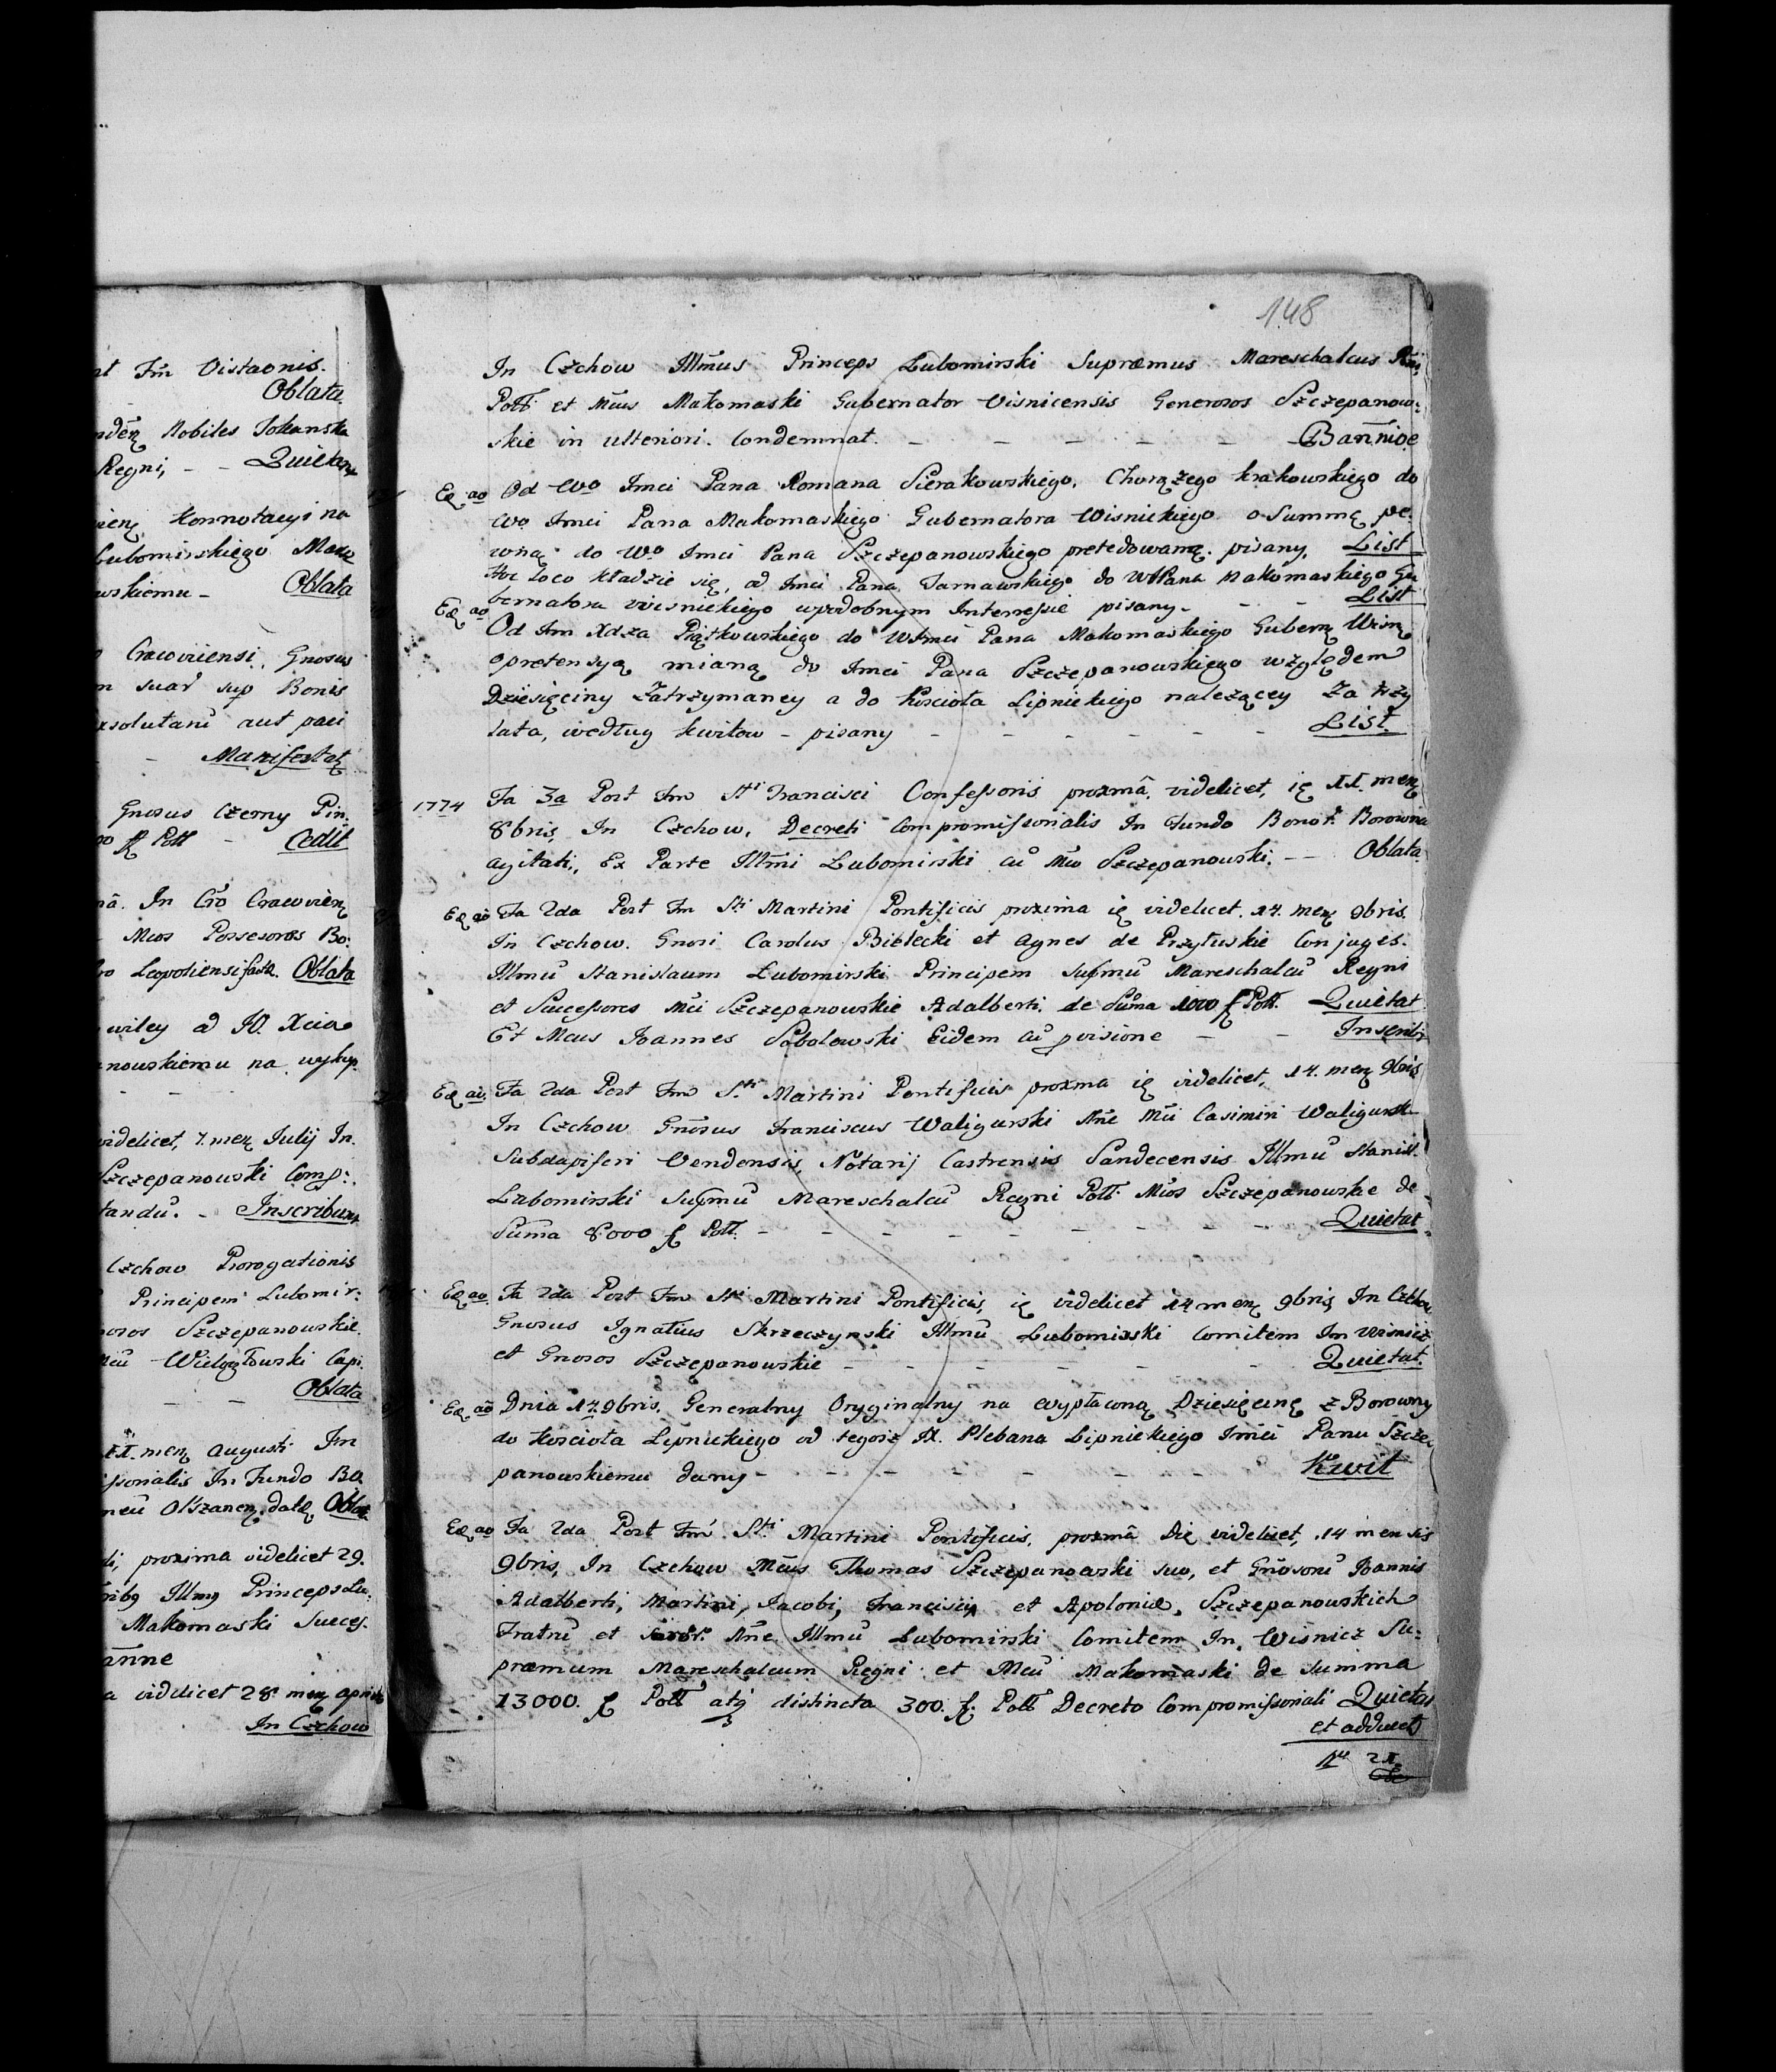 nt Fm Vistaonis.
Oblata
ndēn Nobiles
Regni, - - Quietan
Konnotacyi na
Lubomirskiego Mars
wskiemu - Oblata
Cracoviensi, Gnosus
m suar sup Bonis
xsolutanū aut paci
- Manifestat
Gnosus Czerny Pin.
00 fl Poll - Cedit
nâ. In Cro Cracovien
Mcos Possesores Bo:
Leopoliensi facta. Oblata
wiley a JO. Xcia
nowskiemu na wykup.
- -
videlicet, 7. men Julij In.
Szczepanowski Comp:.
tandū. - Inscribunt
Czchow Prorogationis
Principem Lubomir:
nosos Szczepanowskie.
Mcū Wielogłowski Capi.
- - Oblata
XX. men Augusti In
ssorialis In Fundo Bo
neū Olszanen. dat Oblat
li, proxima videlicet 29.
ribg Illmg Princeps Lu.
Makomaski Succes.
anne
a videlicet 28 men aprilis
In Czchow
148
In Czchow Illmus Princeps Lubomirski Supremus Mareschalcus Rni
Poll: et Mcus Makomaski Gubernator Visnicensis Generosos Szczepanow:
skie in ulteriori. Condemnat. - - - - - Bannioe
Eq ao Od Wo Imci Pana Romana Sierakowskiego, Chorążego krakowskiego do
Wo Imci Pana Makomaskiego Gubernatora Wisnickiego o Summę pe.
wną do Wo Imci Pana Szczepanowskiego pretedowaną. pisany. List
Hoc Loco kładzie się, od Imci Pana Tarnawskiego do WPana Makomaskiego Gu
Eq ao bernatora wisnickiego wpodobnym Interressie pisany - - - List
Od Im Xdza Piątkowskiego do WImci Pana Makomaskiego Gubern Wisn
opretensyą mianą do Imci Pana Szczepanowskiego względem
Dziesięciny Zatrzymaney a do Kościoła Lipnickiego nalezącey Za trzy
lata, według kwitow - pisany - - - - - - List.
1774 Fa 3a Post Fm Sti Francisci Confessoris proxmâ. videlicet, ię XX. men
8bris, In Czchow, Decreti Compromissorialis In Fundo Bonor. Borowna
agitati, Ex Parte Illmi Lubomirski cū Mco Szczepanowski. -- Oblata
Eq ao Fa 2da Post Fm Sti Martini Pontificis proxima ię videlicet. 14. men 9bris.
In Czchow. Gnosi Carolus Bielecki et Agnes de Przyłuskie Conjuges.
Illmū Stanislaum Lubomirski Principem Supmū Mareschalcū Regni
et Successores Mci Szczepanowskie Adalberti, de Suma 1000 fl Poll. Quietat
Et Mcus Joannes Sobolowski Eidem cū pvisione - - Inscribi
Eq ao. Fa 2da Post Fm Sti Martini Pontificis proxma ię videlicet, 14. men 9bris
In Czchow Gnosus Franciscus Waligurski Nne Mci Casimiri Waligursk
Subdapiferi Vendensis, Notarij Castrensis Sandecensis Illmū Stanisl.
Lubomirski Supmū Mareschalcū Regni Poll. Mcos Szczepanowskie de
Suma 8000 fl Poll. - - - - - - Quietat
Eq ao. Fa 2da Post Fm Sti Martini Pontificis, ię videlicet 14 men 9bris In Czchow
Gnosus Ignatius Skrzeczynski Illmū Lubomirski Comitem Im Wisnicz
et Gnosos Szczepanowskie - - - - - Quietat.
Eq ao Dnia 17. 9bris. Generalny Oryginalny na wypłaconą Dziesięcinę z Borowny
do Kościoła Lipnickiego od tegosz X. Plebana Lipnickiego Imci Panu Szcze
panowskiemu dany - - - - - - Kwit
Eq ao Fa 2da Post Fm Sti Martini Pontificis, proxmâ die videlicet, 14 mensis
9bris, In Czchow Mcus Thomas Szczepanowski suo, et Gnosorū Joannis
Adalberti, Martini, Jacobi, Francisci et Apoloniæ, Szczepanowskich
Fratrū et Soror. Nne Illmū Lubomirski Comitem In. Wisnicz Su:
premum Mareschalcum Regni et Mcū Makomaski de Summa
13000. fl Poll atq distincta 300. fl. Poll Decreto Compromissoriali Quietat
et adducit